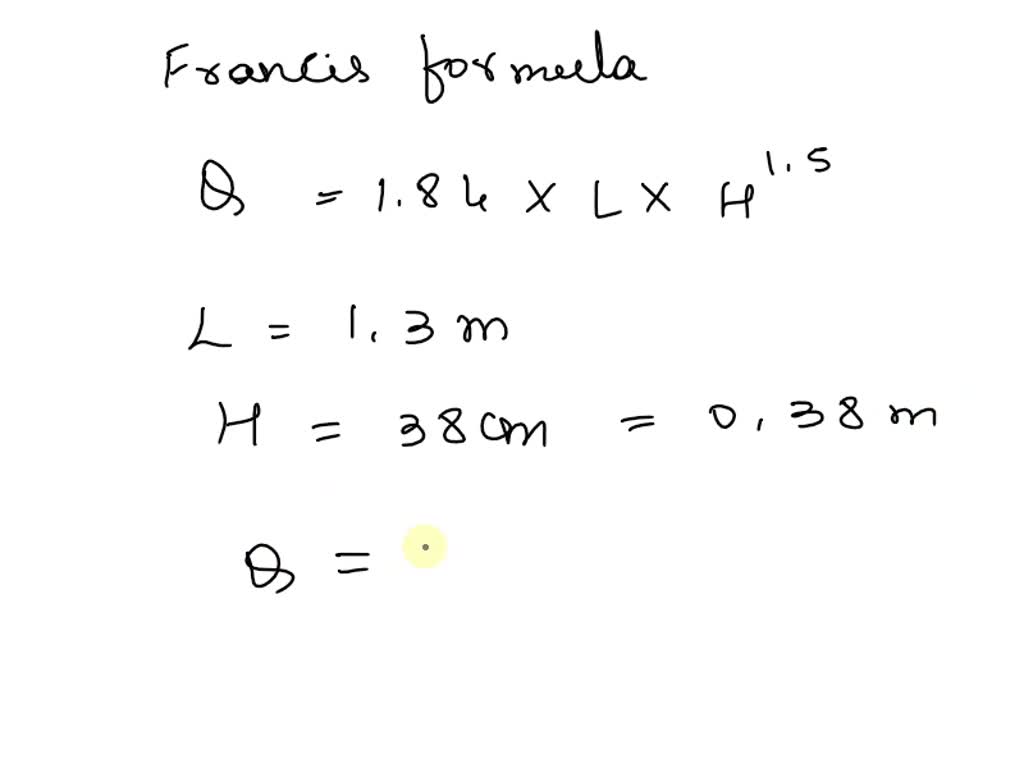 Francis formula
Q = 1.84 × L × H^1.5
L = 1.3 m
H = 38 cm = 0.38 m
Q =